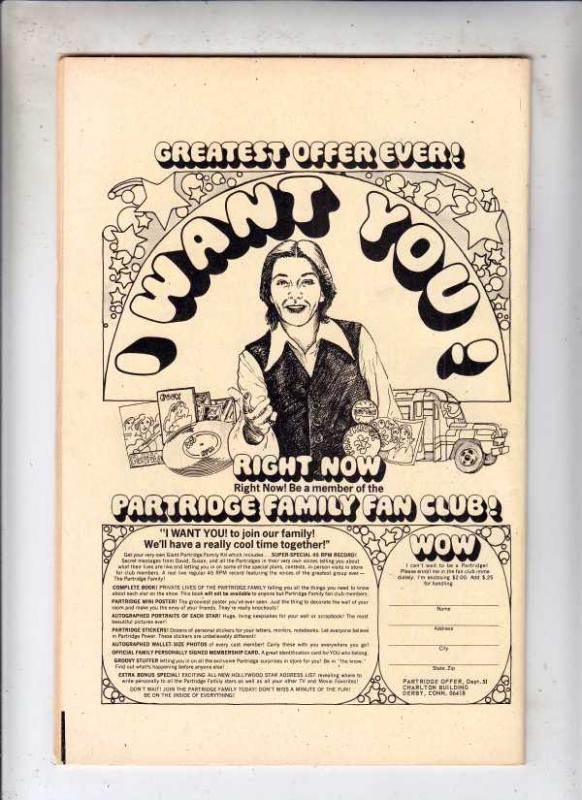 GREATEST OFFER EVER!
I WANT YOU!
RIGHT NOW
Right Now! Be a member of the
PARTRIDGE FAMILY FAN CLUB!
"I WANT YOU! to join our family!
We'll have a really cool time together!"
Get your very own Giant Partridge Family Kit which includes... SUPER-SPECIAL 45 RPM RECORD!
Secret messages from David, Susan, and all the Partridges in their very own voices telling you about
what their lives are like and letting you in on some of the special plans, contests, in person visits in store
for club members. A real live regular 45 RPM record featuring the voices of the greatest group ever —
The Partridge Family!
COMPLETE BOOK! PRIVATE LIVES OF THE PARTRIDGE FAMILY telling you all the things you need to know
about each star on the show. This book will not be available to anyone but Partridge Family fan club members.
PARTRIDGE MINI POSTER! The grooviest poster you've ever seen. Just the thing to decorate the wall of your
room and make you the envy of your friends. They're really knockouts!
AUTOGRAPHED PORTRAITS OF EACH STAR! Huge, living keepsakes for your wall or scrapbook! The most
beautiful pictures ever!
PARTRIDGE STICKERS! Dozens of personal stickers for your letters, mirrors, notebooks. Let everyone believe
in Partridge Power. These stickers are unbelievably different!
AUTOGRAPHED WALLET-SIZE PHOTOS of every cast member! Carry these with you everywhere you go!
OFFICIAL FAMILY PERSONALLY SIGNED MEMBERSHIP CARD. A great identification card for YOU who belong.
GROOVY STUFFER letting you in on all the exclusive Partridge surprises in store for you! Be in "the know."
Find out what's happening before anyone else!
EXTRA BONUS SPECIAL! EXCITING ALL NEW HOLLYWOOD STAR ADDRESS LIST revealing where to
write personally to all the Partridge Family stars as well as all your other TV and Movie Favorites!
DON'T WAIT! JOIN THE PARTRIDGE FAMILY TODAY! DON'T MISS A MINUTE OF THE FUN!
BE ON THE INSIDE OF EVERYTHING!
WOW
I can't wait to be a Partridge!
Please enroll me in the fan club immediately. I'm enclosing $2.00. Add $.25
for handling.
Name
Address
City
State, Zip
PARTRIDGE OFFER, Dept. 51
CHARLTON BUILDING
DERBY, CONN. 06418